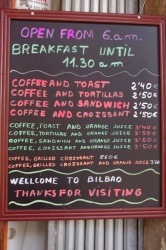 OPEN FROM 6 a.m.
BREAKFAST UNTIL
11.30 a m
COFFEE AND TOAST 2'40€
COFFEE AND TORTILLAS 2'50€
COFFEE AND SANDWICH 2'50€
COFFEE AND CROISSANT 2'50€
COFFEE, TOAST AND ORANGE JUICE 3'40€
COFFEE, TORTILLA AND ORANGE JUICE 3'50€
COFFEE, SANDWICH AND ORANGE JUICE 3'50€
COFFEE, CROISSANT AND ORANGE JUICE 3'50€
COFFEE, GRILLED CROISSANT
COFFEE, GRILLED CROISSANT AND ORANGE JUICE
WELLCOME TO BILBAO
THANKS FOR VISITING